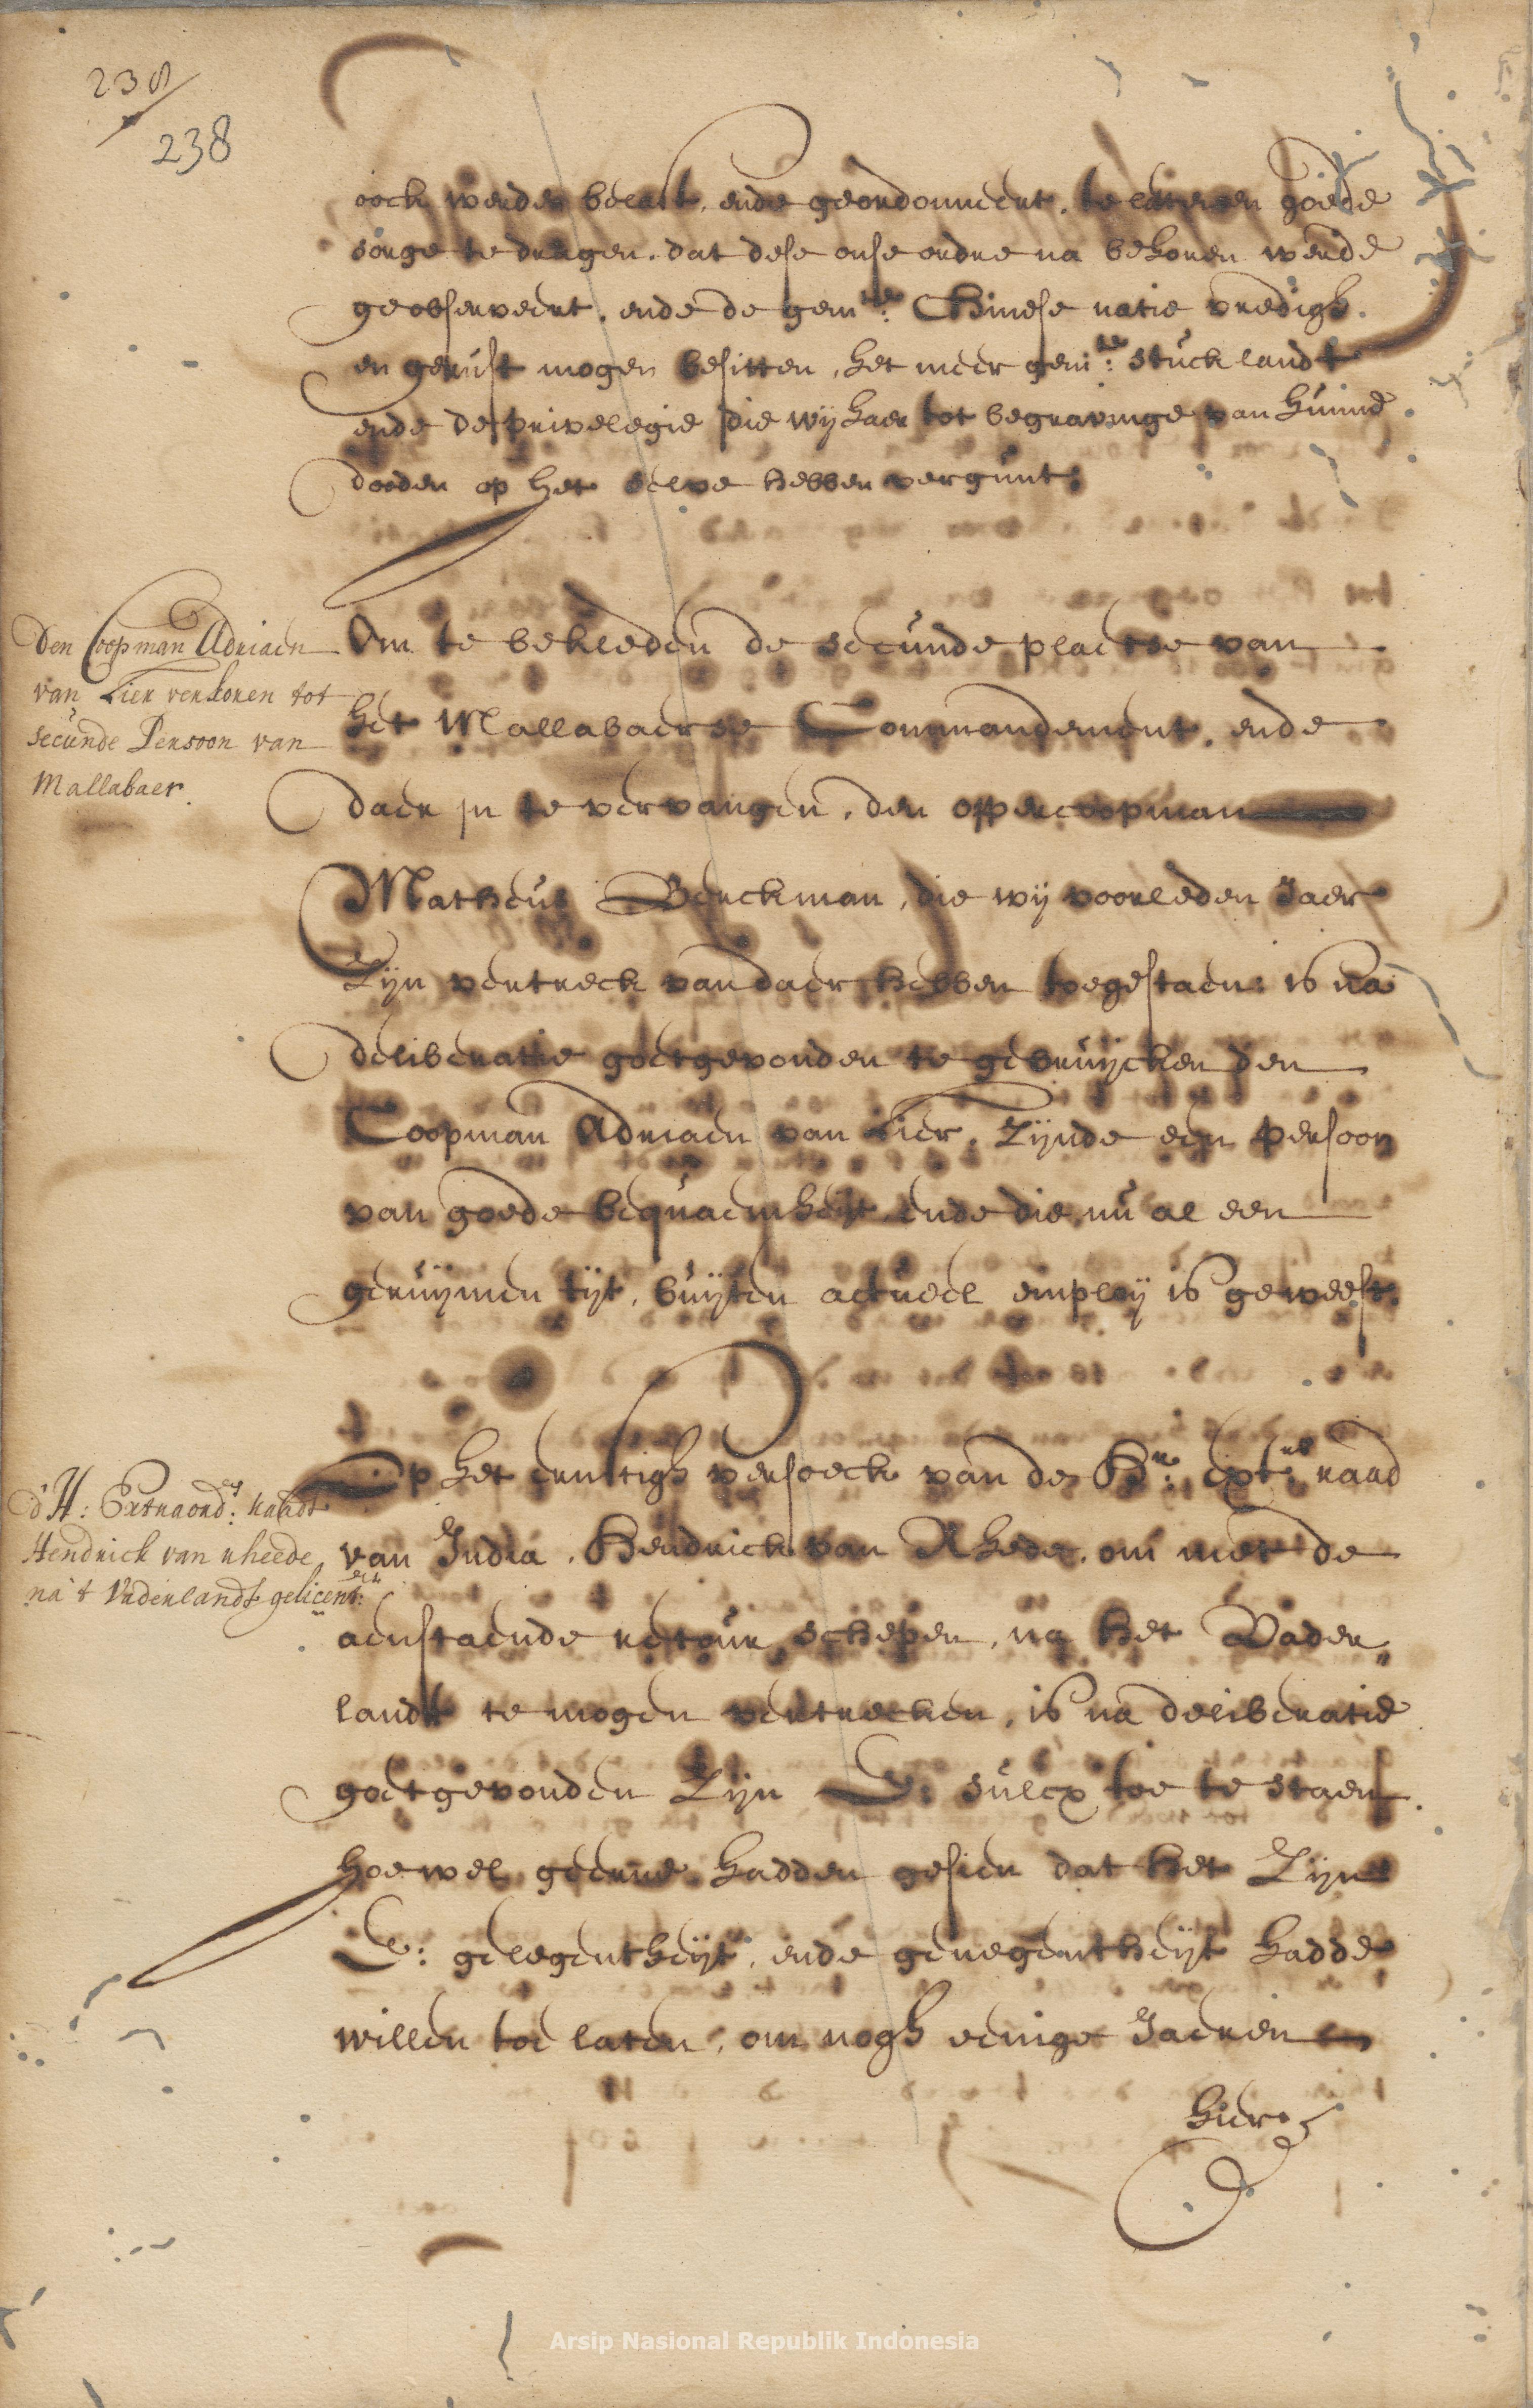 238
238
oock werden belast, ende geordonneert, te letten en goede
sorge te dragen, dat dese onse ordre na behoren werde
geobserveert, ende de gem:te Chinese natie vredigh
en gerust mogen besitten, het meer gem:te stuck landt
ende de privelegie die wij haer tot begravinge van hunne
dooden op het selve hebben vergunt.
Den Coopman Adriaen
van Lier verkoren tot
secunde Persoon van
Mallabaer.
Om te bekleden de secunde plaetse van
het Mallabaerse Commandement, ende
daer in te vervangen, den oppercoopman
Matheus Berckman, die wij voorleden Jaer
Zijn vertreck van daer hebben toegestaen: is na
deliberatie goetgevonden te gebruijcken den
Coopman Adriaen van Lier, Zijnde een persoon
van goede bequaemheijt, ende die nu al een
geruijmen tijt, buijten actueel emploij is geweest.
d'H: Extraord: raadt
Hendrick van rheede
na 't Vaderlandt gelicent:
Op het ernstigh versoeck van de Hr: ext:rs raad
van India, Hendrick van Rhede, om met de
aenstaende retour schepen, na het Vader„
landt te mogen vertrecken, is na deliberatie
goetgevonden Zijn E: sulcx toe te staen
hoewel geerne hadden gesien dat het Zijn
E: gelegentheijt, ende genegentheijt hadde
willen toe laten, om nogh eenige Jaeren
hier
Arsip Nasional Republik Indonesia